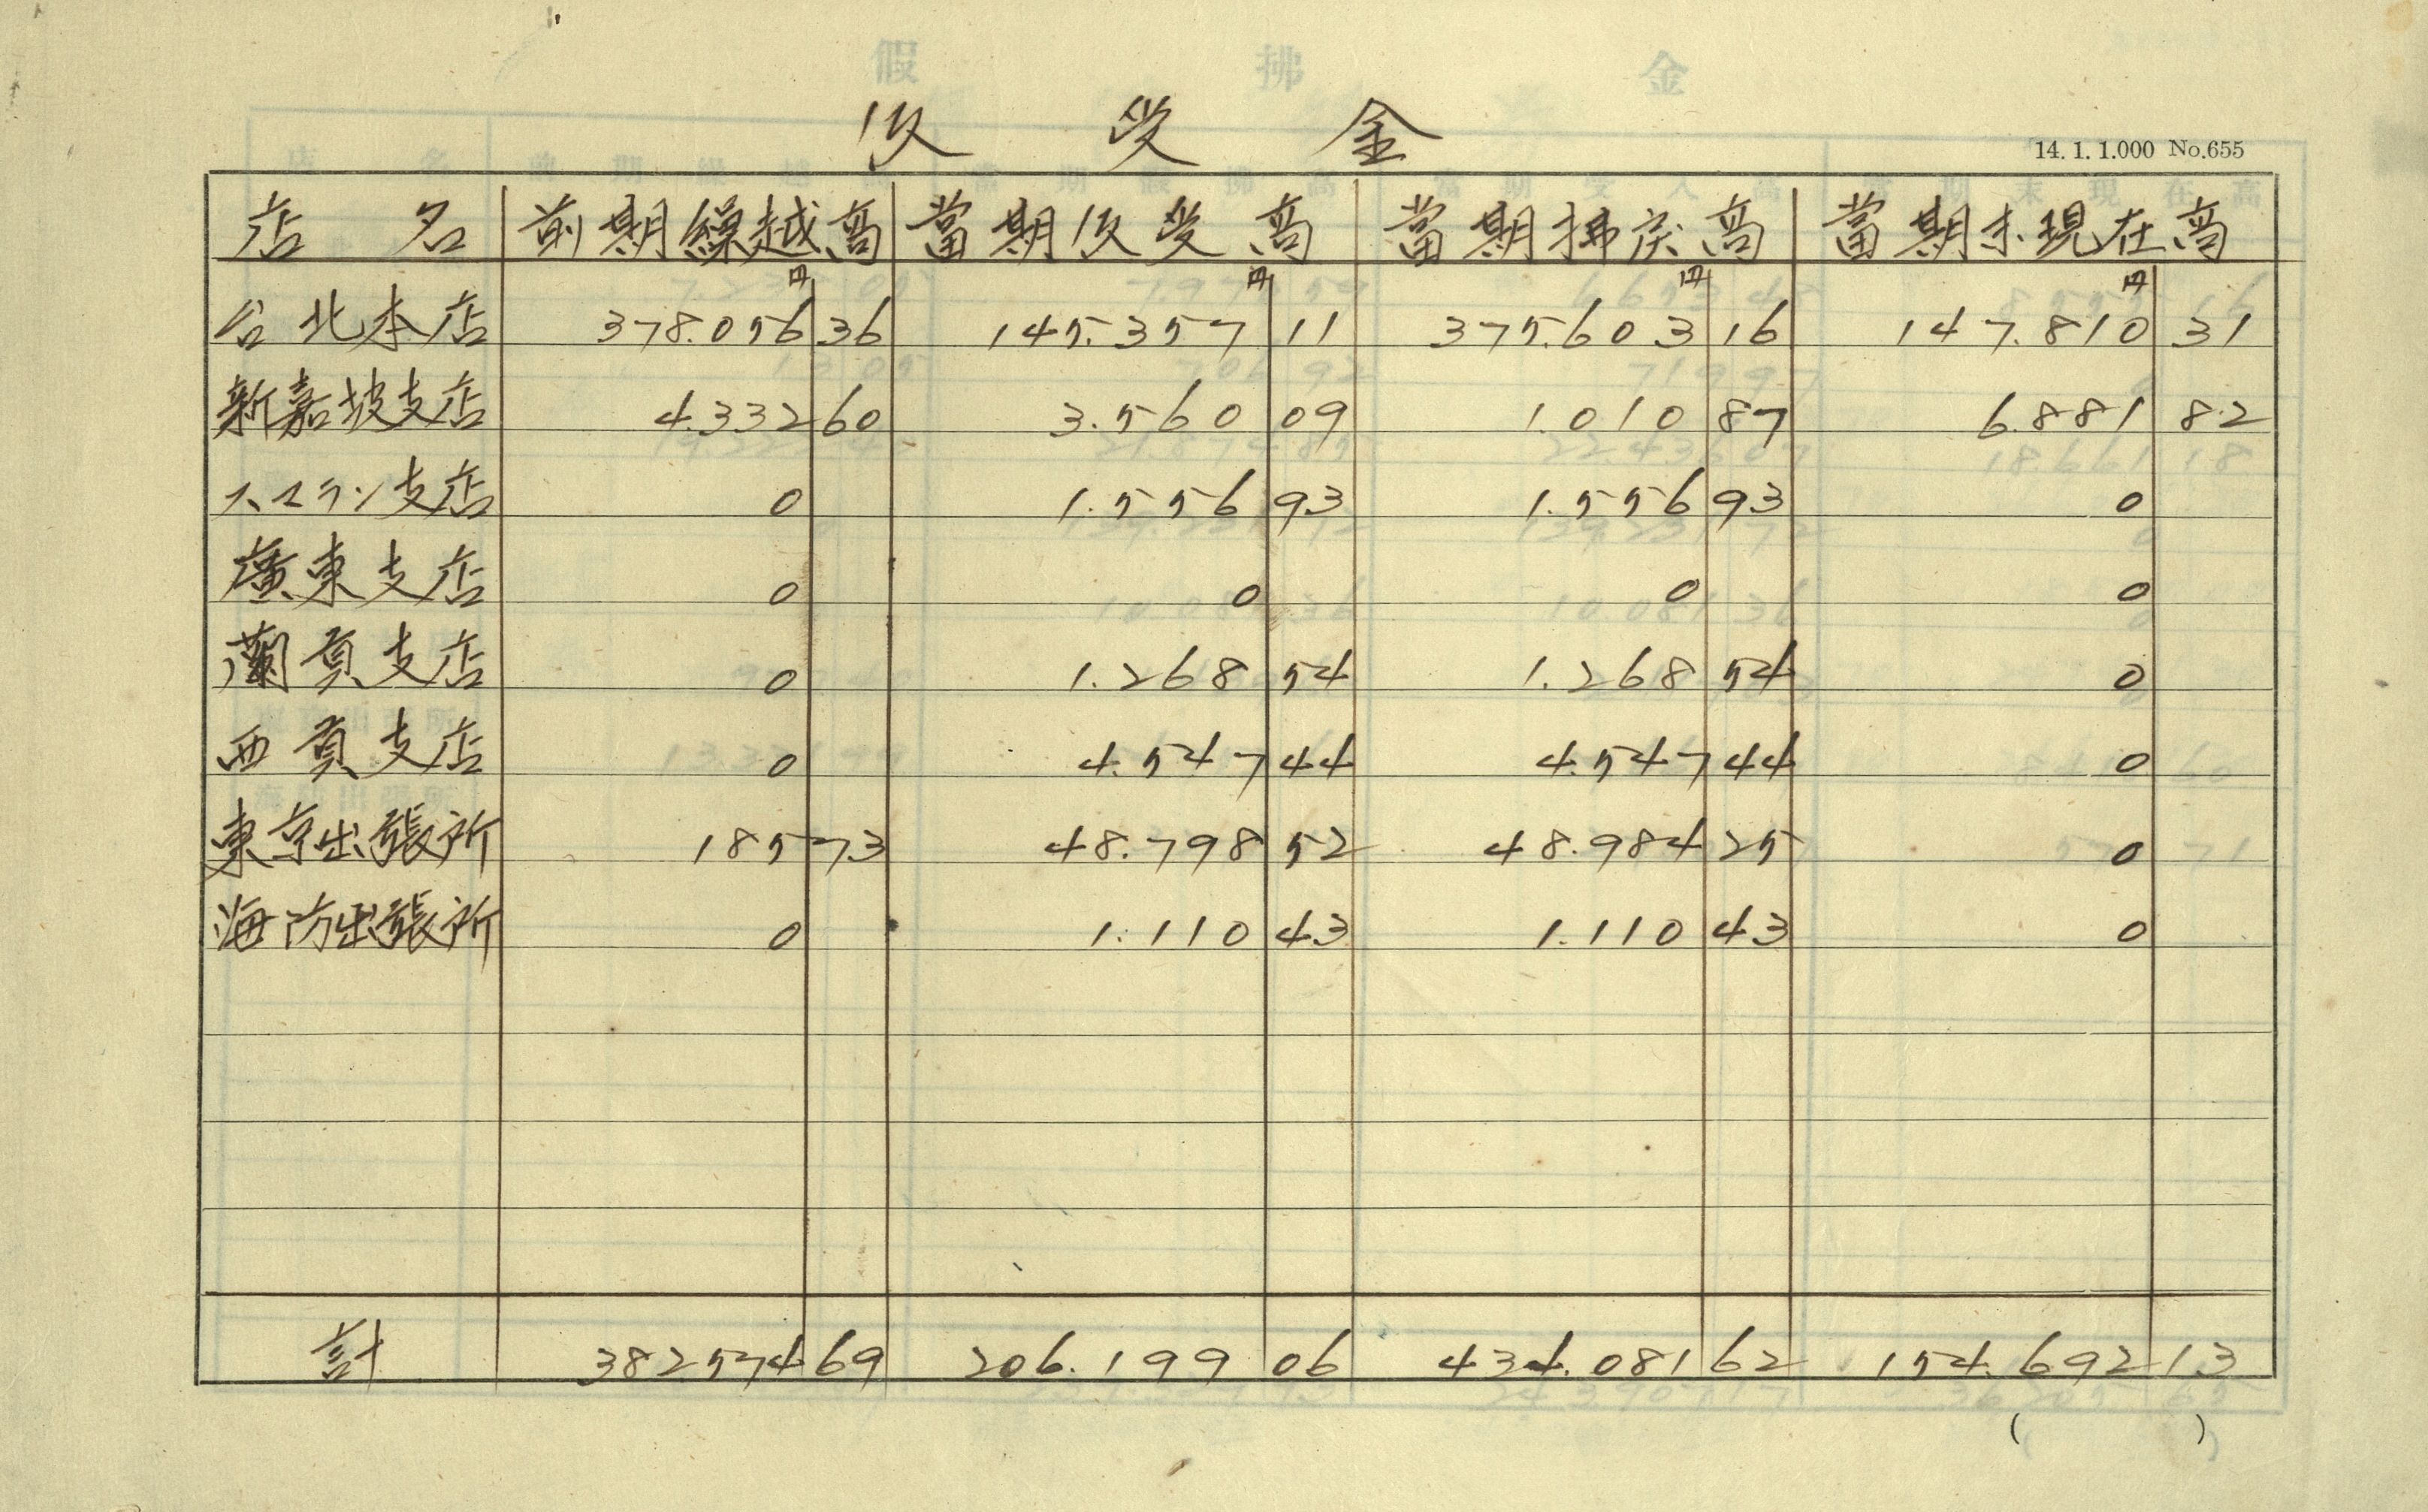 仮受金
14. 1. 1.000 No.655
店名 前期繰越高 當期仮受高 當期拂戻高 當期末現在高
円 円 円 円
台北本店 378.056 36 145.357 11 375.603 16 147.810 31
新嘉坡支店 4.332 60 3.560 09 1.010 87 6.881 82
スマラン支店 0 1.556 93 1.556 93 0
廣東支店 0 0 0 0
蘭貢支店 0 1.268 54 1.268 54 0
西貢支店 0 4.547 44 4.547 44 0
東京出張所 185 73 48.798 52 48.984 25 0
海防出張所 0 1.110 43 1.110 43 0
計 382574 69 206.199 06 434.081 62 154.692 13
( )